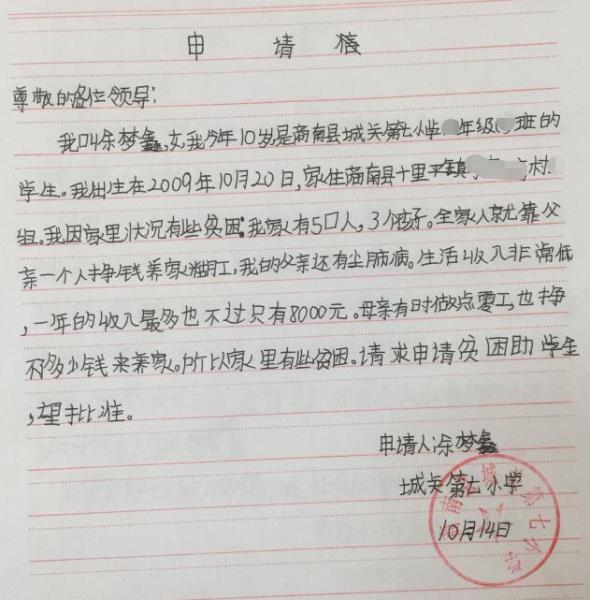 申 请
尊敬的各位领导:
我叫涂梦鑫,女,我今年10岁是商南县城关第七小学 年级 班的
学生。我出生在2009年10月20日,家住商南县十里 镇 村
组。我因家里状况有些贫困。我家有5口人,3个孩子。全家人就靠父
亲一个人挣钱养家糊口,我的父亲还有尘肺病。生活收入非常低
,一年的收入最多也不过只有8000元。母亲有时做点零工,也挣
不多少钱来养家。所以家里有些贫困。请求申请贫困助学生
,望批准。
申请人:涂梦鑫
城关第七小学
10月14日
南 城 第七小学